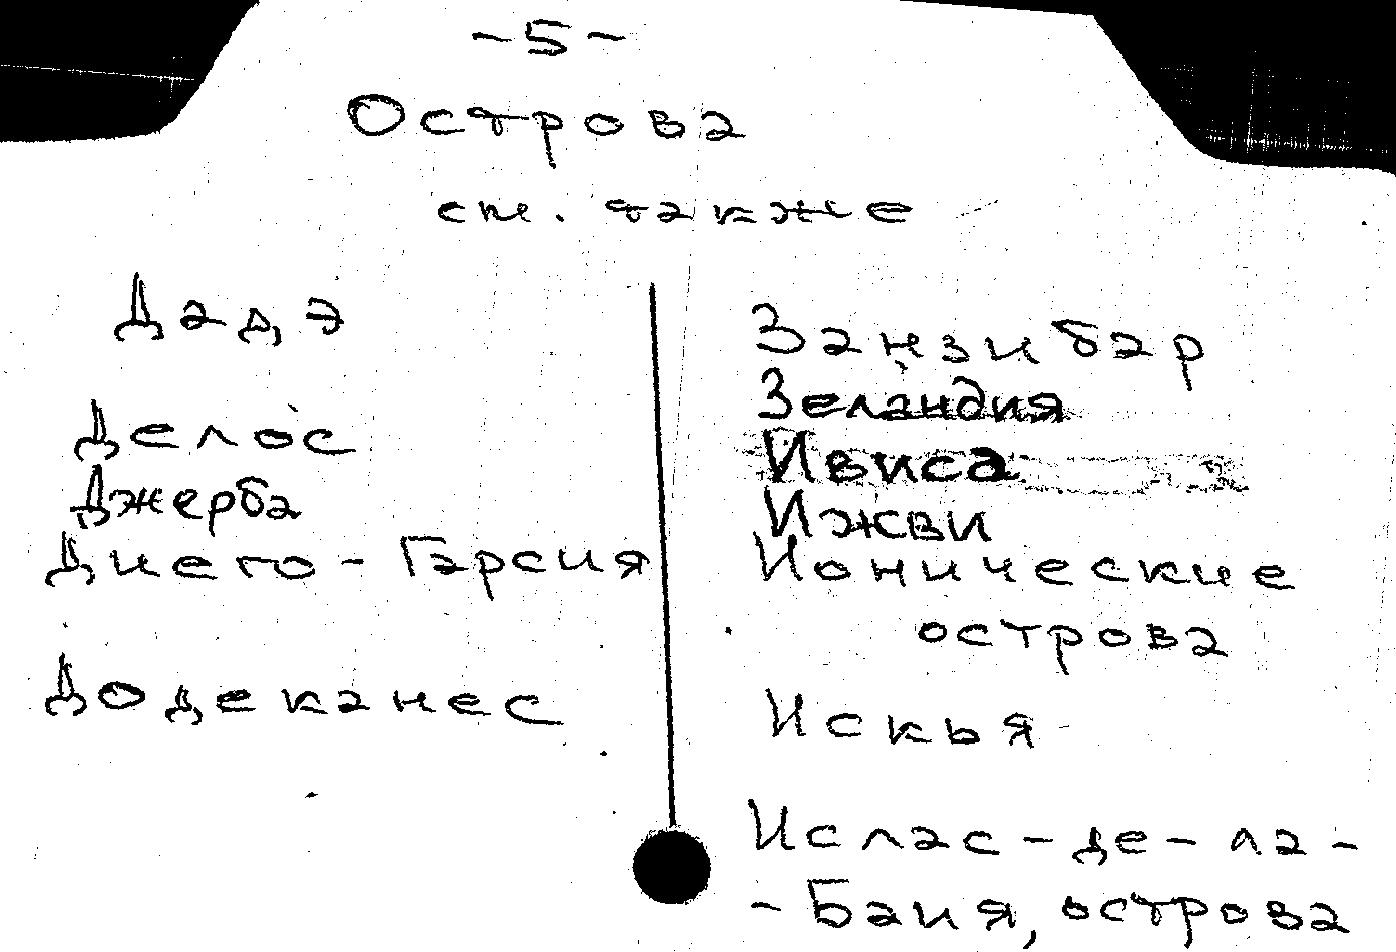 -5-
Острова
см. также
Дадэ
Делос
Джерба
Диего-Гарсия
Додеканес
Занзибар
Зеландия
Ивиса
Ижви
Ионические
острова
Искья
Ислас-де-ла-
-Баия, острова